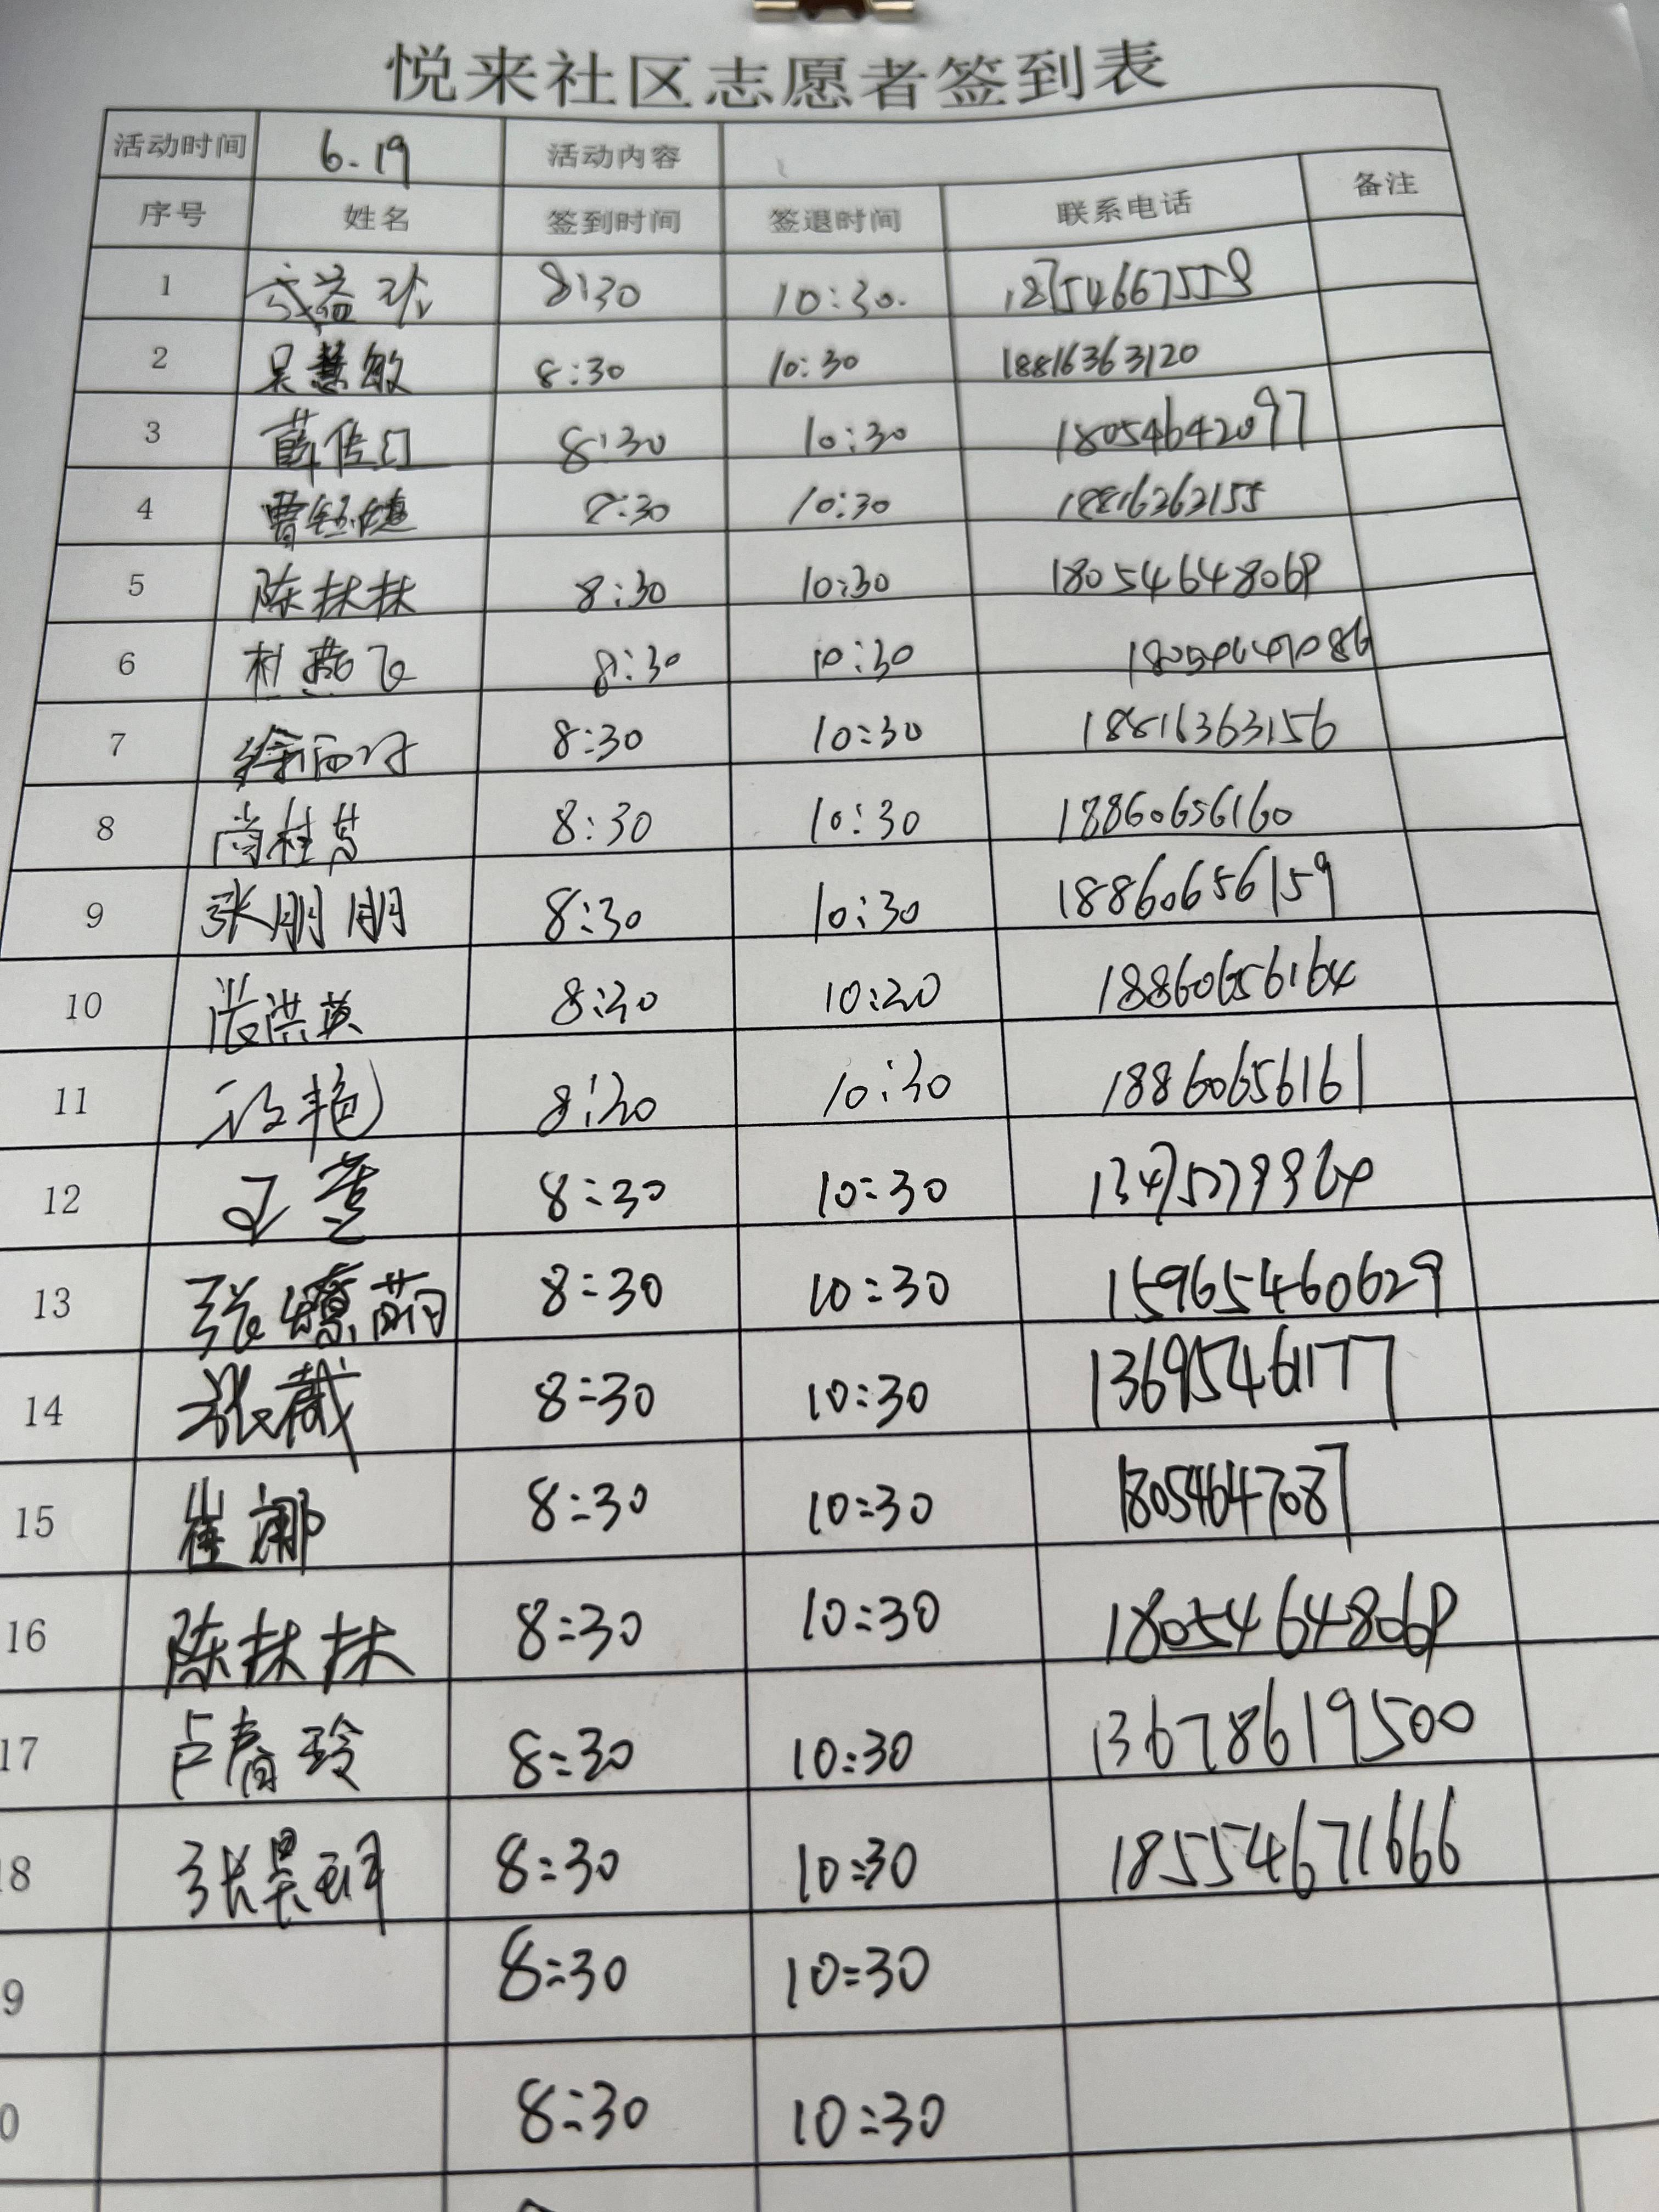 悦来社区志愿者签到表
活动时间 6.19 活动内容
序号 姓名 签到时间 签退时间 联系电话 备注
1 8:30 10:30. 18754667558
2 吴慧敏 8:30 10:30 18816363120
3 薛传 8:30 10:30 18054642097
4 曹 8:30 10:30
5 陈林林 8:30 10:30 1805464806P
6 杜燕飞 8:30 10:30
7 徐 8:30 10:30 18816363156
8 尚桂芳 8:30 10:30 18860656160
9 张朋朋 8:30 10:30 18860656159
10 张洪英 8:30 10:30 18860656164
11 艳 8:30 10:30 18860656161
12 王萱 8:30 10:30
13 张 8:30 10:30 15965460629
14 张 8:30 10:30 13695461177
15 崔娜 8:30 10:30 18054647087
16 陈林林 8:30 10:30 1805464806P
17 卢春玲 8:30 10:30 13678619500
18 张昊 8:30 10:30 18554671666
9 8:30 10:30
0 8:30 10:30